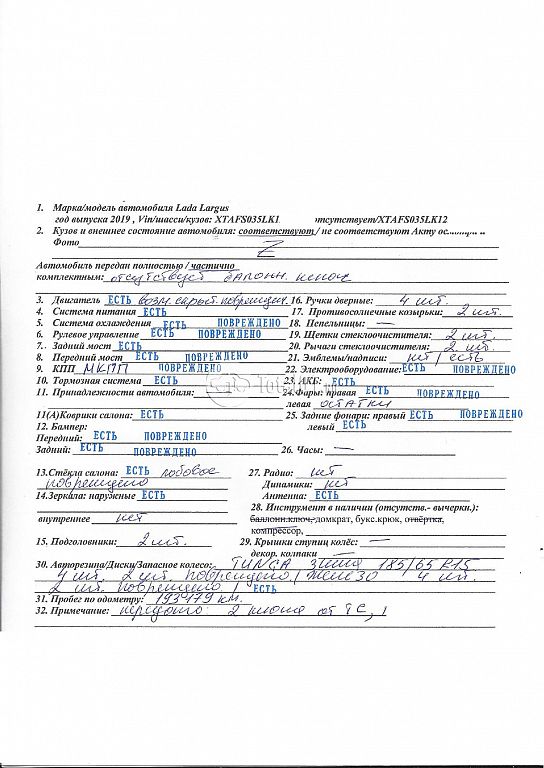 1. Марка/модель автомобиля Lada Largus
год выпуска 2019 , Vin/шасси/кузов: XTAFS035LK1 отсутствует/XTAFS035LK12
2. Кузов и внешнее состояние автомобиля: соответствуют / не соответствуют Акту
Фото Z
Автомобиль передан полностью / частично
комплектным: отсутствует балонн. ключ
3. Двигатель ЕСТЬ возм. скрыт. поврежден. 16. Ручки дверные: 4 шт.
4. Система питания ЕСТЬ 17. Противосолнечные козырьки: 2 шт.
5. Система охлаждения ЕСТЬ ПОВРЕЖДЕНО 18. Пепельницы: —
6. Рулевое управление ЕСТЬ ПОВРЕЖДЕНО 19. Щетки стеклоочистителя: 2 шт.
7. Задний мост ЕСТЬ 20. Рычаги стеклоочистителя: 2 шт.
8. Передний мост ЕСТЬ ПОВРЕЖДЕНО 21. Эмблемы/надписи: нет / есть
9. КПП МКПП ПОВРЕЖДЕНО 22. Электрооборудование: ЕСТЬ ПОВРЕЖДЕНО
10. Тормозная система ЕСТЬ 23. АКБ: ЕСТЬ
11. Принадлежности автомобиля: 24. Фары: правая ЕСТЬ ПОВРЕЖДЕНО
левая остатки
11(А)Коврики салона: ЕСТЬ 25. Задние фонари: правый ЕСТЬ ПОВРЕЖДЕНО
12. Бампер: левый ЕСТЬ
Передний: ЕСТЬ ПОВРЕЖДЕНО
Задний: ЕСТЬ ПОВРЕЖДЕНО 26. Часы: —
13.Стёкла салона: ЕСТЬ лобовое 27. Радио: нет
повреждено Динамики: нет
14.Зеркала: наружные ЕСТЬ Антенна: ЕСТЬ
28. Инструмент в наличии (отсутств.- вычерки.):
внутреннее нет баллонн.ключ, домкрат, букс.крюк, отвёртка,
компрессор,
15. Подголовники: 2 шт. 29. Крышки ступиц колёс: —
декор. колпаки —
30. Авторезина/Диски/Запасное колесо: TUNGA зима 185/65 R15
4 шт. 2 шт. повреждено / железо 4 шт.
2 шт. повреждено / ЕСТЬ
31. Пробег по одометру: 193479 км.
32. Примечание: передано: 2 ключа от ТС,